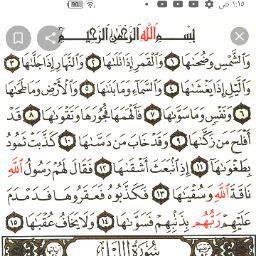 ١:١٥ ص
بِسْمِ اللَّهِ الرَّحْمَٰنِ الرَّحِيمِ
وَالشَّمْسِ وَضُحَىٰهَا ١ وَالْقَمَرِ إِذَا تَلَىٰهَا ٢ وَالنَّهَارِ إِذَا جَلَّىٰهَا ٣
وَالَّيْلِ إِذَا يَغْشَىٰهَا ٤ وَالسَّمَآءِ وَمَا بَنَىٰهَا ٥ وَالْأَرْضِ وَمَا طَحَىٰهَا
٦ وَنَفْسٍ وَمَا سَوَّىٰهَا ٧ فَأَلْهَمَهَا فُجُورَهَا وَتَقْوَىٰهَا ٨ قَدْ
أَفْلَحَ مَن زَكَّىٰهَا ٩ وَقَدْ خَابَ مَن دَسَّىٰهَا ١٠ كَذَّبَتْ ثَمُودُ
بِطَغْوَىٰهَآ ١١ إِذِ انۢبَعَثَ أَشْقَىٰهَا ١٢ فَقَالَ لَهُمْ رَسُولُ اللَّهِ
نَاقَةَ اللَّهِ وَسُقْيَىٰهَا ١٣ فَكَذَّبُوهُ فَعَقَرُوهَا فَدَمْدَمَ
عَلَيْهِمْ رَبُّهُم بِذَنۢبِهِمْ فَسَوَّىٰهَا ١٤ وَلَا يَخَافُ عُقْبَىٰهَا ١٥
سُورَةُ اللَّيْلِ